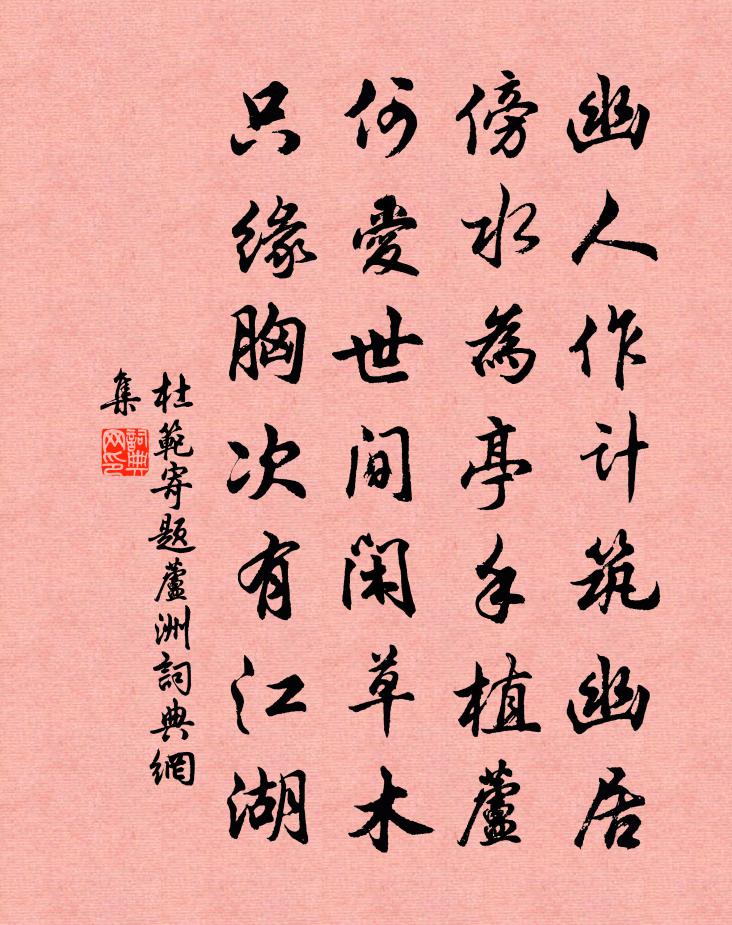 幽人作计筑幽居
傍水為亭手植蘆
何愛世间闲草木
只缘胸次有江湖
杜範寄题蘆洲詞典網
集
詞典
网印